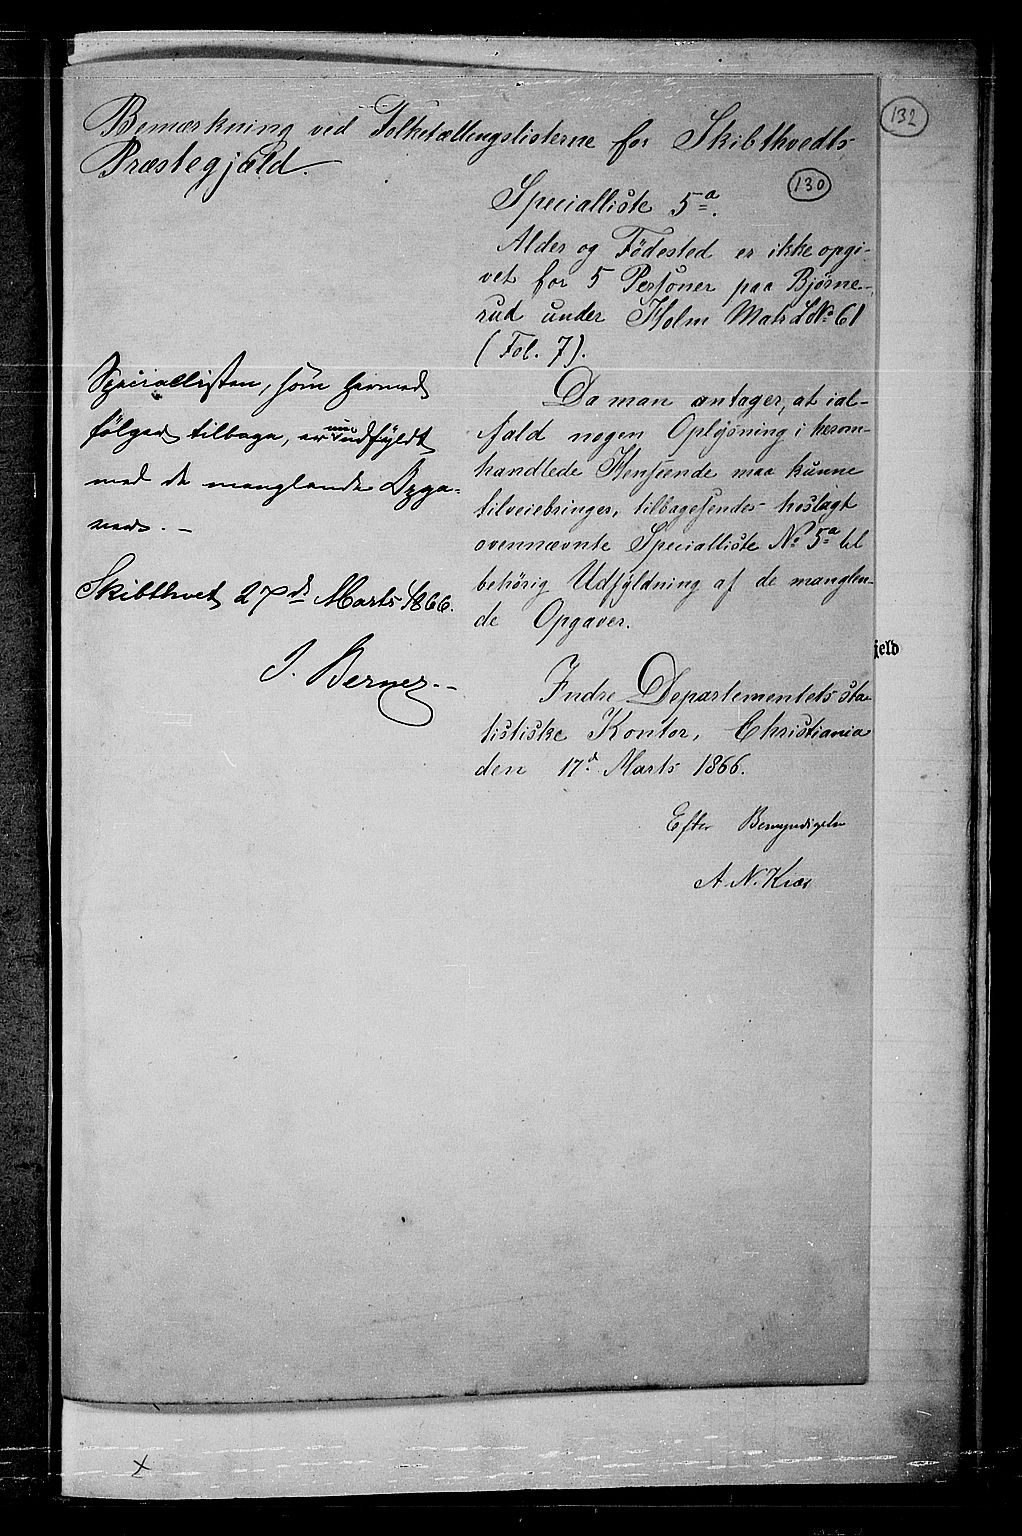 132
Bemærkning ved Folketællingslisterne for Skibthvedts
Præstegjæld.
130
Specialliste 5a.
Alder og Födested er ikke opgi-
vet for 5 Personer paa Bjørne-
rud under Holm Mats LNo 61
(Fol. 7).
Da man antager, at ial-
fald nogen Oplysning i herom-
handlede Henseende maa kunne
tilveiebringes, tilbagesendes hoslagt
ovennævnte Specialliste No 5a til
behörig Udfyldning af de manglen-
de Opgaver.
Indre Departementets sta-
tistiske Kontor, Christiania
den 17d Marts 1866.
Efter Bemyndigelse
A. N. Kiær
Speciallisten, som hermed
fölger tilbage, er nu udfyldt
med de manglende Opga-
ver. -
Skibthvet 27de Marts 1866.
J. Berner.
jeld
x